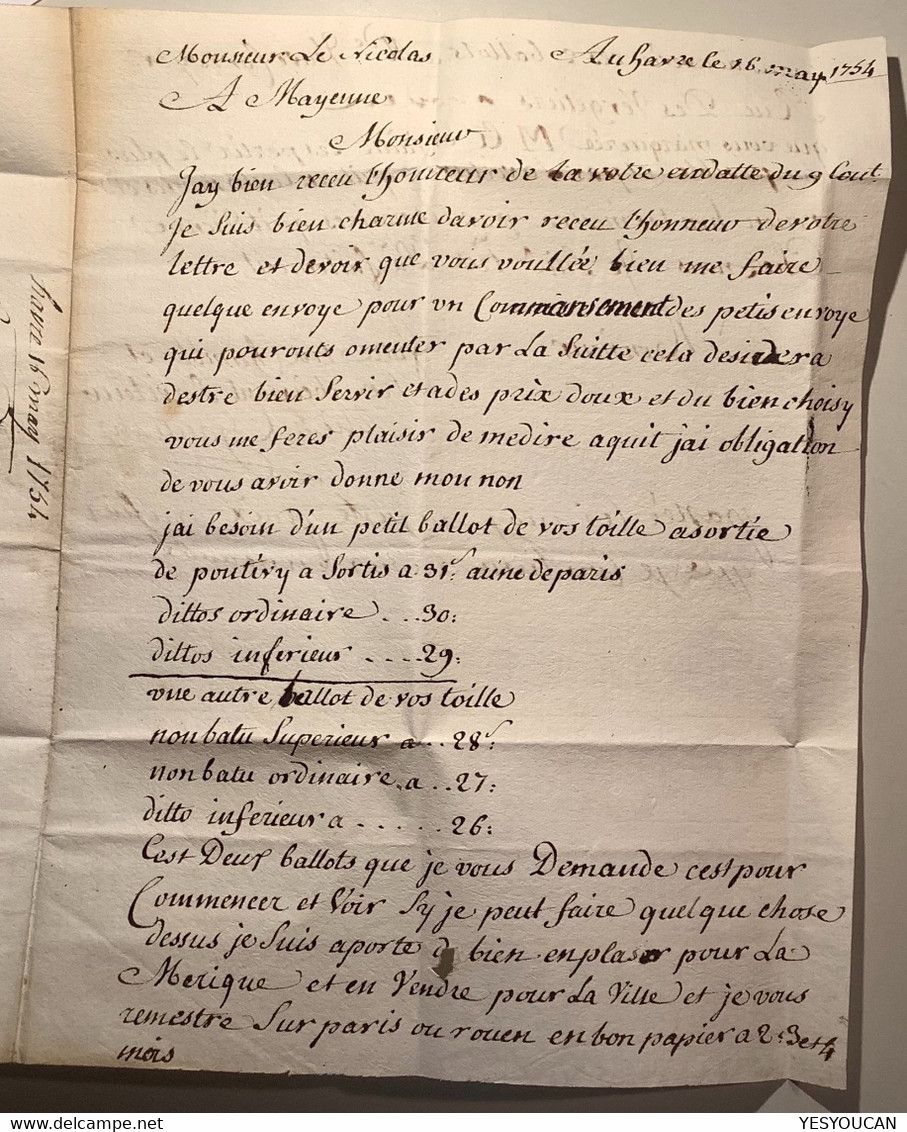 Monsieur Le Nicolas Au havre le 16 may 1754
A Mayenne
Monsieur
Jay bien receu lhonneur de la votre endatte du 9 Cout.
Je Suis bien charme davoir receu lhonneur de votre
lettre et devoir que vous voullée bien me faire
quelque envoye pour vn Commansement des petis envoye
qui pouronts omenter par La Suitte cela desidera
destre bien Servir et a des prix doux et du bien choisy
vous me feres plaisir de me dire a quit jai obligation
de vous avoir donne mon non
jai besoin d'un petit ballot de vos toille asortie
de pontivy a Sortis a 31s. aune de paris
dittos ordinaire . . . 30:
dittos inferieur . . . . 29:
vne autre ballot de vos toille
non batu Superieur a . . 28s.
non batu ordinaire a . . 27:
ditto inferieur a . . . . . 26:
Cest Deux ballots que je vous Demande cest pour
Commencer et Voir Sy je peut faire quelque chose
dessus je Suis a porte bien en plaser pour La
Merique et en Vendre pour La Ville et je vous
remestre Sur paris ou rouen en bon papier a 2. 3 et 4
mois
havre 16 may 1754
YESYOUCAN